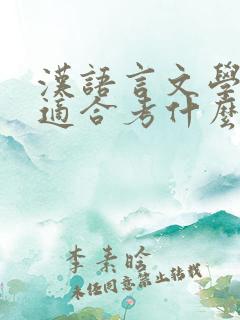 漢語言文學
適合考什麼
李素晗
未經同意禁止轉載